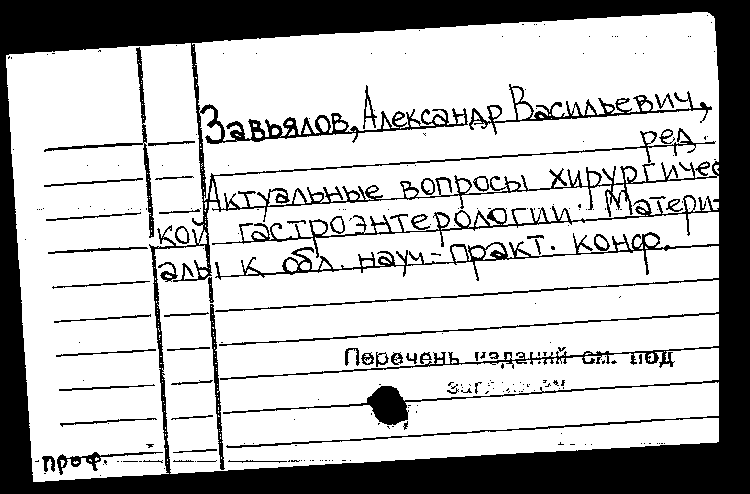 Завьялов, Александр Васильевич,
ред.
Актуальные вопросы хирургичес
кой гастроэнтерологии: Матери-
алы к обл. науч-практ. конф.
Перечень изданий см. под
заглавием
проф.